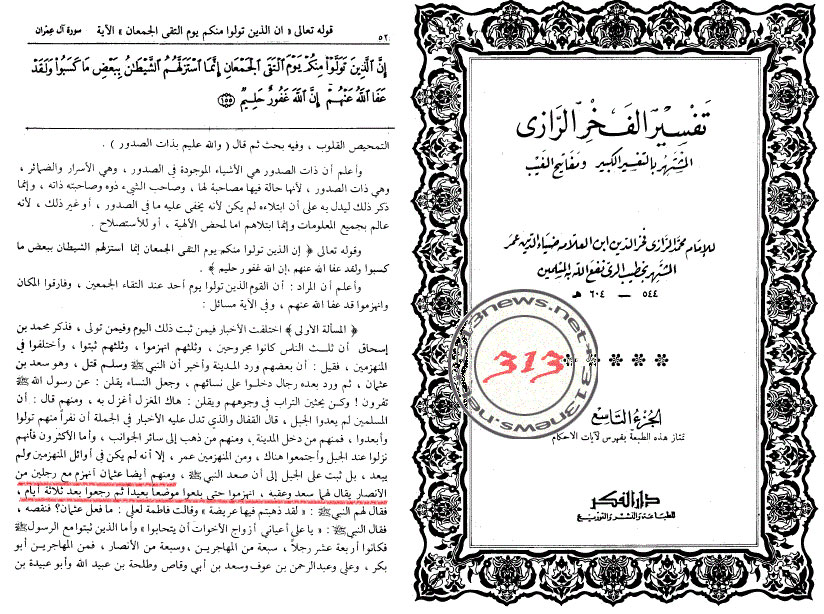 تَفسِيرُ الفَخْرِ الرَّازِى
المُشتَهِر بالتفسِيرِ الكبير ومَفاتيحِ الغَيب
للإمَام محمّد الرازى فخر الدين ابن العلامه ضياء الدين عمر
المشتهر بخطيب الرى نفع الله به المسلمين
٥٤٤ — ٦٠٤ هـ
313news.net
313
الجزء التاسع
تمتاز هذه الطبعة بفهرس لآيات الاحكام
دار الفكر
للطباعة والنشر والتوزيع
قوله تعالى « ان الذين تولوا منكم يوم التقى الجمعان » الآية سورة آل عمران
٥٢
إِنَّ ٱلَّذِينَ تَوَلَّوْا۟ مِنكُمْ يَوْمَ ٱلْتَقَى ٱلْجَمْعَانِ إِنَّمَا ٱسْتَزَلَّهُمُ ٱلشَّيْطَـٰنُ بِبَعْضِ مَا كَسَبُوا۟ وَلَقَدْ
عَفَا ٱللَّهُ عَنْهُمْ إِنَّ ٱللَّهَ غَفُورٌ حَلِيمٌ ١٥٥
التمحيص القلوب ، وفيه بحث ثم قال ( والله عليم بذات الصدور ) .
وأعلم أن ذات الصدور هي الأشياء الموجودة في الصدور ، وهي الأسرار والضمائر ،
وهي ذات الصدور ، لأنها حالة فيها مصاحبة لها ، وصاحب الشيء ذوه وصاحبته ذاته ، وإنما
ذكر ذلك ليدل به على أن ابتلاءه لم يكن لأنه يخفى عليه ما في الصدور ، أو غير ذلك ، لأنه
عالم بجميع المعلومات وإنما ابتلاهم اما لمحض الألهية ، أو للأستصلاح .
وقوله تعالى ﴿ إن الذين تولوا منكم يوم التقى الجمعان إنما استزلهم الشيطان ببعض ما
كسبوا ولقد عفا الله عنهم ، إن الله غفور حليم ﴾ .
وأعلم أن المراد : أن القوم الذين تولوا يوم أحد عند التقاء الجمعين ، وفارقوا المكان
وانهزموا قد عفا الله عنهم ، وفي الآية مسائل :
﴿ المسألة الاولى ﴾ اختلفت الأخبار فيمن ثبت ذلك اليوم وفيمن تولى ، فذكر محمد بن
إسحاق أن ثلث الناس كانوا مجروحين ، وثلثهم انهزموا ، وثلثهم ثبتوا ، وأختلفوا في
المنهزمين ، فقيل : أن بعضهم ورد المدينة وأخبر أن النبي ﷺ وسلم قتل ، وهو سعد بن
عثمان ، ثم ورد بعده رجال دخلوا على نسائهم ، وجعل النساء يقلن : عن رسول الله ﷺ
تفرون ! وكن يحثين التراب في وجوههم ويقلن : هاك المغزل أغزل به ، ومنهم قال : أن
المسلمين لم يعدوا الجبل ، قال القفال والذي تدل عليه الأخبار في الجملة أن نفراً منهم تولوا
وأبعدوا ، فمنهم من دخل المدينة ، ومنهم من ذهب إلى سائر الجوانب ، وأما الأكثرون فأنهم
نزلوا عند الجبل وأجتمعوا هناك ، ومن المنهزمين عمر ، إلا أنه لم يكن في أوائل المنهزمين ولم
يبعد ، بل ثبت على الجبل إلى أن صعد النبي ﷺ ، ومنهم أيضا عثمان أنهزم مع رجلين من
الأنصار يقال لهما سعد وعقبة ، انهزموا حتى بلغوا موضعا بعيداً ثم رجعوا بعد ثلاثة أيام ،
فقال لهم النبي ﷺ : « لقد ذهبتم فيها عريضة » وقالت فاطمة لعلي : ما فعل عثمان ؟ فنقصه ،
فقال النبي ﷺ : « يا علي أعياني أزواج الأخوات أن يتحابوا » وأما الذين ثبتوا مع الرسول ﷺ
فكانوا أربعة عشر رجلاً ، سبعة من المهاجرين ، وسبعة من الأنصار ، فمن المهاجرين أبو
بكر ، وعلي وعبد الرحمن بن عوف وسعد بن أبي وقاص وطلحة بن عبيد الله وأبو عبيدة بن